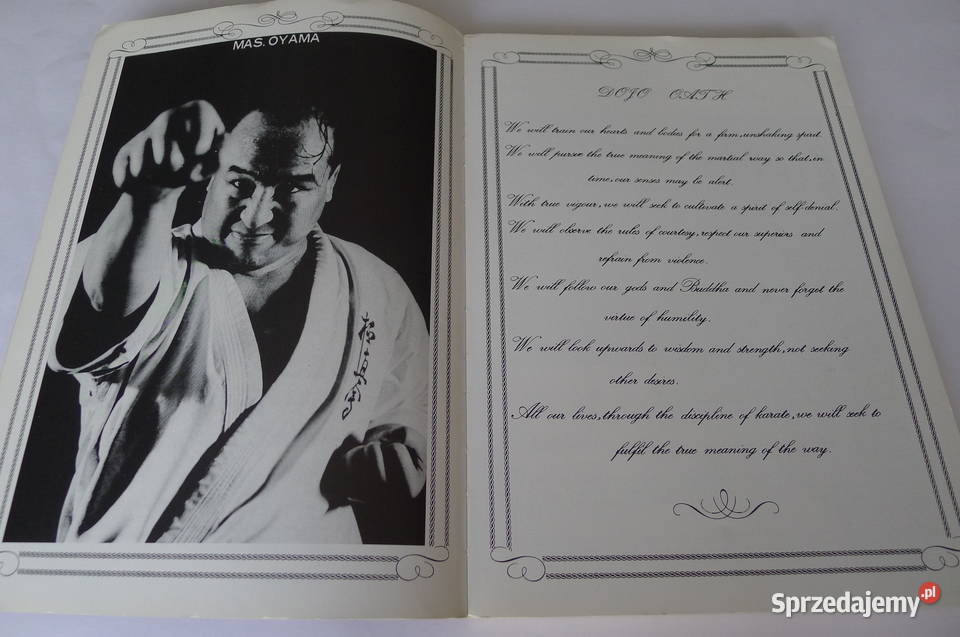 MAS. OYAMA
DOJO OATH
We will train our hearts and bodies for a firm, unshaking spirit.
We will pursue the true meaning of the martial way so that, in
time, our senses may be alert.
With true vigour, we will seek to cultivate a spirit of self-denial.
We will observe the rules of courtesy, respect our superiors and
refrain from violence.
We will follow our gods and Buddha and never forget the
virtue of humility.
We will look upwards to wisdom and strength, not seeking
other desires.
All our lives, through the discipline of karate, we will seek to
fulfil the true meaning of the way.
Sprzedajemy.pl